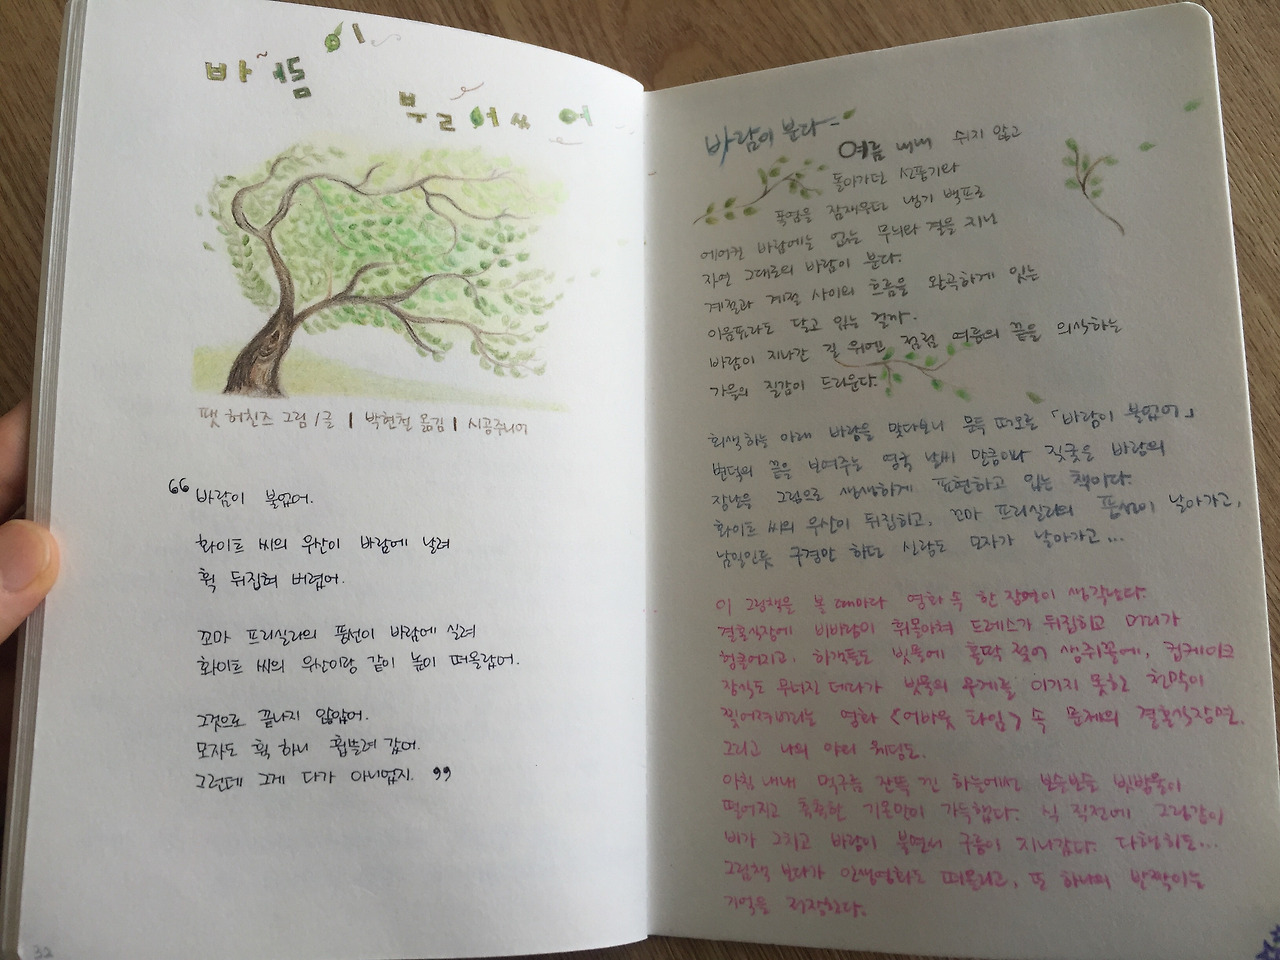 바람이
불어쓰어
팻 허친즈 그림/글 | 박현철 옮김 | 시공주니어
“바람이 불었어.
화이트 씨의 우산이 바람에 날려
휙 뒤집혀 버렸어.
꼬마 프리실라의 풍선이 바람에 실려
화이트 씨의 우산이랑 같이 높이 떠올랐어.
그것으로 끝나지 않았어.
모자도 휙 하니 휩쓸려 갔어.
그런데 그게 다가 아니었지.”
32
바람이 분다-
여름 내내 쉬지 않고
돌아가던 선풍기와
폭염을 잠재우던 냉기 백프로
에어컨 바람에는 없는 무늬와 결을 지닌
자연 그대로의 바람이 분다.
계절과 계절 사이의 흐름을 완곡하게 잇는
이음표라도 달고 있는 걸까.
바람이 지나간 길 위엔 점점 여름의 끝을 의식하는
가을의 질감이 드리운다.
회색 하늘 아래 바람을 맞다보니 문득 떠오른 「바람이 불었어」
변덕의 끝을 보여주는 영국 날씨 만큼이나 짓궂은 바람의
장난을 그림으로 생생하게 표현하고 있는 책이다.
화이트 씨의 우산이 뒤집히고, 꼬마 프리실라의 풍선이 날아가고,
남일인듯 구경만 하던 신랑도 모자가 날아가고...
이 그림책을 볼 때마다 영화 속 한 장면이 생각난다.
결혼식장에 비바람이 휘몰아쳐 드레스가 뒤집히고 머리가
헝클어지고, 하객들도 빗물에 홀딱 젖어 생쥐꼴에, 컵케이크
장식도 무너진 데다가 빗물의 무게를 이기지 못한 천막이
찢어져버리는 영화 <어바웃 타임> 속 문제의 결혼식장면.
그리고 나의 야외 웨딩도.
아침 내내 먹구름 잔뜩 낀 하늘에서 보슬보슬 빗방울이
떨어지고 촉촉한 기운만이 가득했다. 식 직전에 그림같이
비가 그치고 바람이 불면서 구름이 지나갔다. 다행히도...
그림책 보다가 인생영화도 떠올리고, 또 하나의 반짝이는
기억을 저장한다.